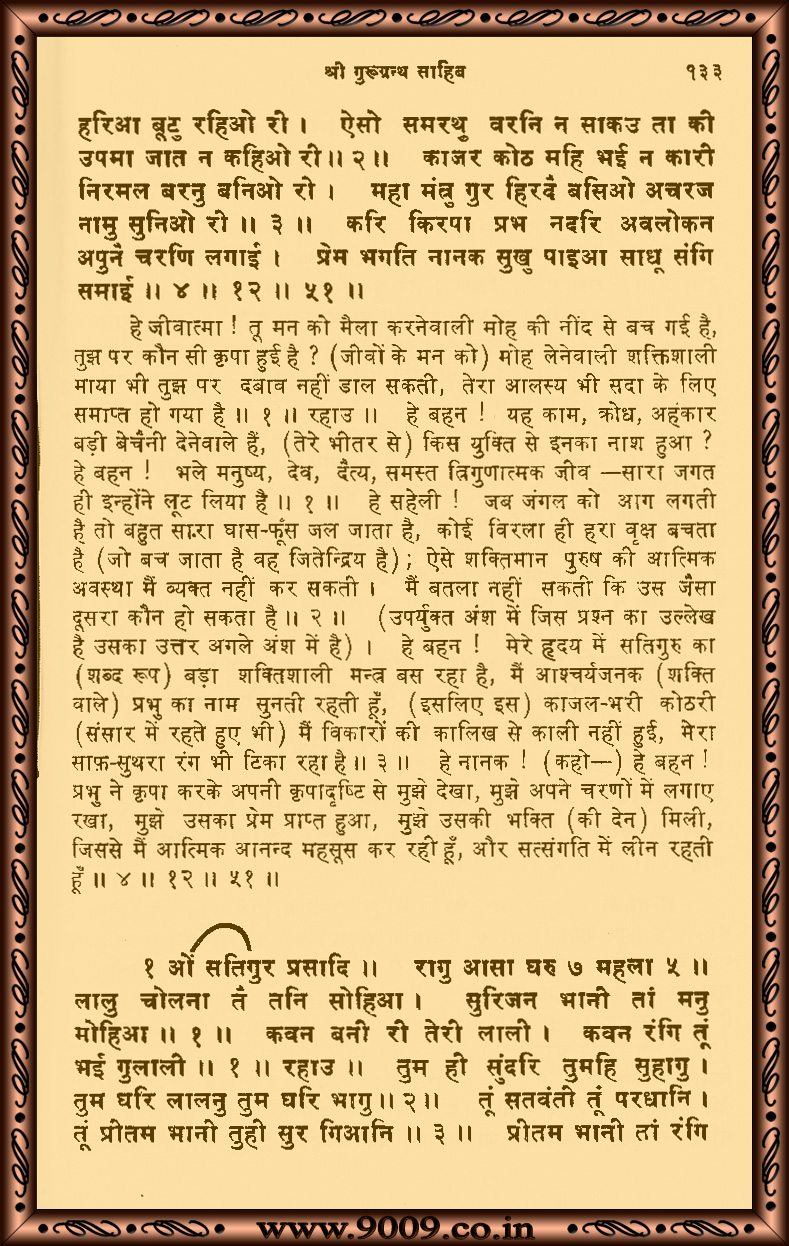 श्री गुरूग्रन्थ साहिब १३३
हरिआ बूटु रहिओ री । ऐसो समरथु वरनि न साकउ ता की
उपमा जात न कहिओ री ॥ २ ॥ काजर कोठ महि भई न कारी
निरमल बरनु बनिओ री । महा मंत्रु गुर हिरदै बसिओ अचरज
नामु सुनिओ री ॥ ३ ॥ करि किरपा प्रभ नदरि अवलोकन
अपुनै चरणि लगाई । प्रेम भगति नानक सुखु पाइआ साधू संगि
समाई ॥ ४ ॥ १२ ॥ ५१ ॥
हे जीवात्मा ! तू मन को मैला करनेवाली मोह की नींद से बच गई है,
तुझ पर कौन सी कृपा हुई है ? (जीवों के मन को) मोह लेनेवाली शक्तिशाली
माया भी तुझ पर दबाव नहीं डाल सकती, तेरा आलस्य भी सदा के लिए
समाप्त हो गया है ॥ १ ॥ रहाउ ॥ हे बहन ! यह काम, क्रोध, अहंकार
बड़ी बेचैनी देनेवाले हैं, (तेरे भीतर से) किस युक्ति से इनका नाश हुआ ?
हे बहन ! भले मनुष्य, देव, दैत्य, समस्त त्रिगुणात्मक जीव —सारा जगत
ही इन्होंने लूट लिया है ॥ १ ॥ हे सहेली ! जब जंगल को आग लगती
है तो बहुत सारा घास-फूँस जल जाता है, कोई विरला ही हरा वृक्ष बचता
है (जो बच जाता है वह जितेन्द्रिय है) ; ऐसे शक्तिमान पुरुष की आत्मिक
अवस्था मैं व्यक्त नहीं कर सकती । मैं बतला नहीं सकती कि उस जैसा
दूसरा कौन हो सकता है ॥ २ ॥ (उपर्युक्त अंश में जिस प्रश्न का उल्लेख
है उसका उत्तर अगले अंश में है) । हे बहन ! मेरे हृदय में सतिगुरु का
(शब्द रूप) बड़ा शक्तिशाली मन्त्र बस रहा है, मैं आश्चर्यजनक (शक्ति
वाले) प्रभु का नाम सुनती रहती हूँ, (इसलिए इस) काजल-भरी कोठरी
(संसार में रहते हुए भी) मैं विकारों की कालिख से काली नहीं हुई, मेरा
साफ़-सुथरा रंग भी टिका रहा है ॥ ३ ॥ हे नानक ! (कहो—) हे बहन !
प्रभु ने कृपा करके अपनी कृपादृष्टि से मुझे देखा, मुझे अपने चरणों में लगाए
रखा, मुझे उसका प्रेम प्राप्त हुआ, मुझे उसकी भक्ति (की देन) मिली,
जिससे मैं आत्मिक आनन्द महसूस कर रही हूँ, और सत्संगति में लीन रहती
हूँ ॥ ४ ॥ १२ ॥ ५१ ॥
१ ओं सतिगुर प्रसादि ॥ रागु आसा घरु ७ महला ५ ॥
लालु चोलना तै तनि सोहिआ । सुरिजन भानी तां मनु
मोहिआ ॥ १ ॥ कवन बनी री तेरी लाली । कवन रंगि तूं
भई गुलाली ॥ १ ॥ रहाउ ॥ तुम ही सुंदरि तुमहि सुहागु ।
तुम घरि लालनु तुम घरि भागु ॥ २ ॥ तूं सतवंती तूं परधानि ।
तूं प्रीतम भानी तुही सुर गिआनि ॥ ३ ॥ प्रीतम भानी तां रंगि
www.9009.co.in